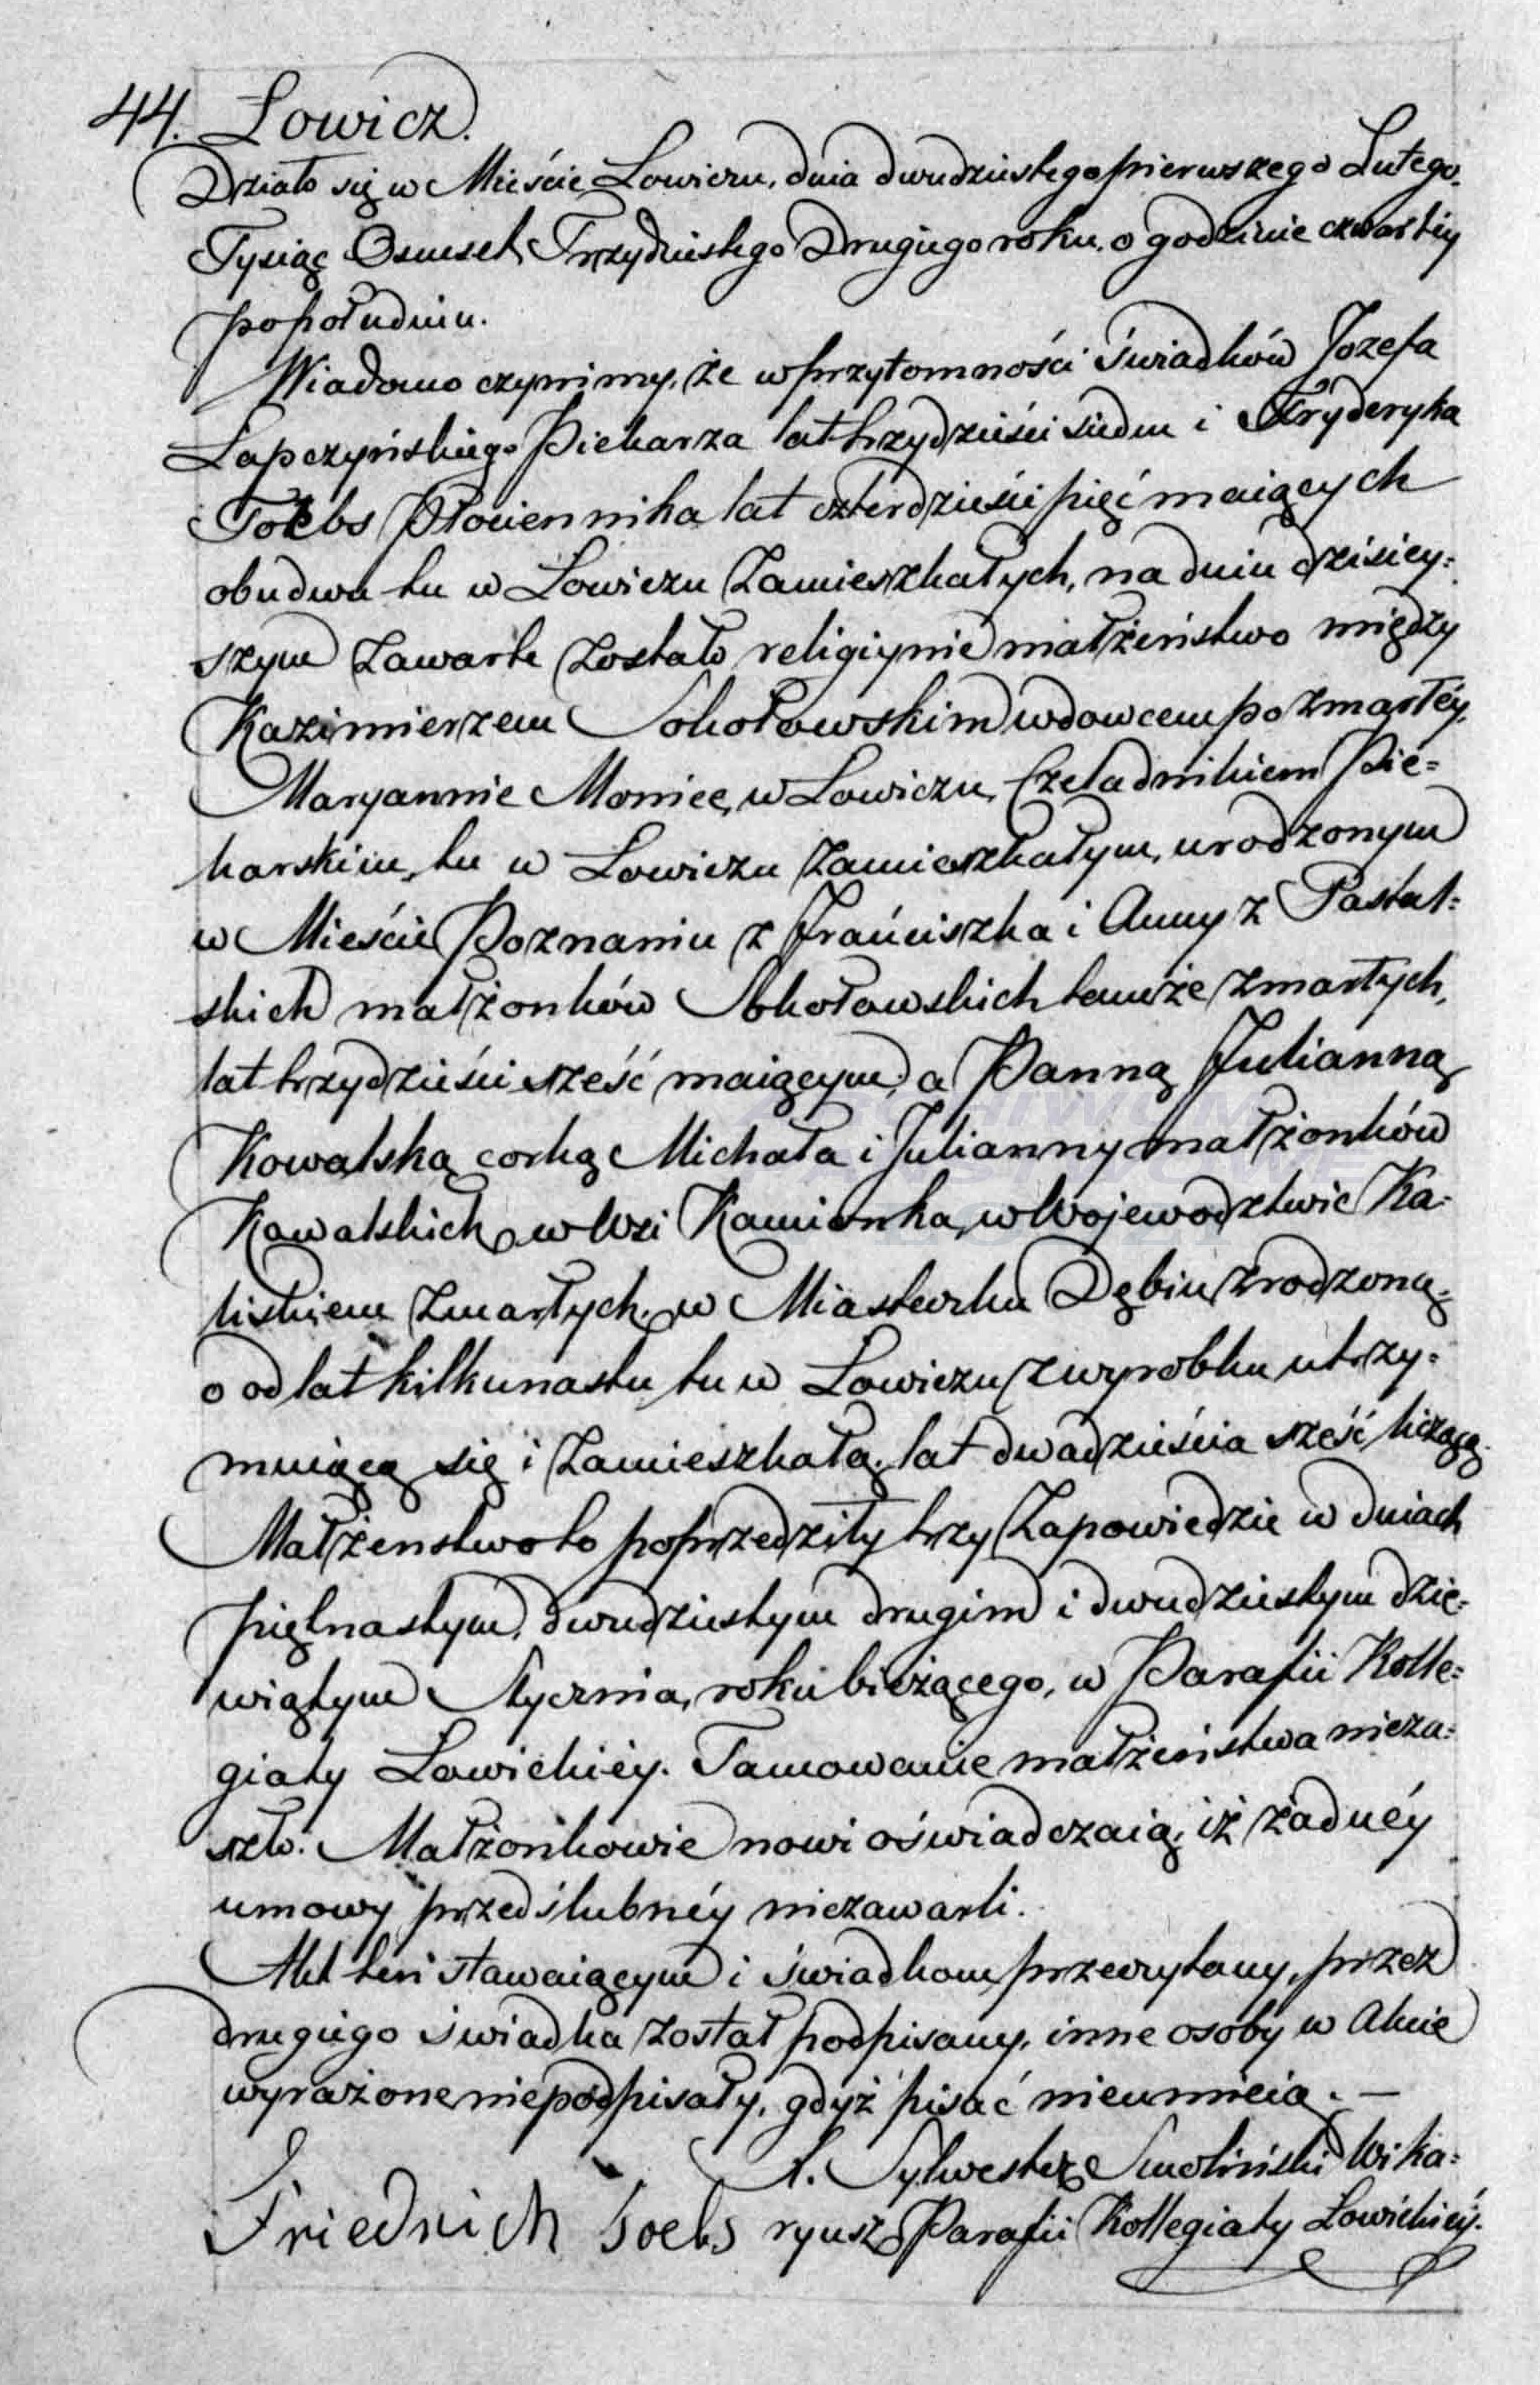 44. Łowicz.
Działo się w Mieście Łowiczu, dnia dwudziestego pierwszego Lutego
Tysiąc Osmset Trzydziestego Drugiego roku, o godzinie czwartey
popołudniu.
Wiadomo czynimy, że w przytomności świadków Jozefa
Łapczyńskiego Piekarza lat trzydzieści siedm i Fryderyka
Toebs Płociennika lat czterdzieści pięć maiących
obudwu tu w Łowiczu Zamieszkałych, na dniu dzisiey=
szym Zawarte Zostało religiynie małżeństwo między
Kazimierzem Sokołowskim wdowcem po zmarłéy
Maryannie Monice, w Łowiczu, Czeladnikiem Pie=
karskim, tu w Łowiczu Zamieszkałym, urodzonym
w Mieście Poznaniu z Franciszka i Anny z
skich małżonków Sokołowskich tamże zmarłych,
lat trzydzieści sześć maiącym, a Panną Julianną
Kowalską corką Michała i Julianny małżonków
Kowalskich, w Wsi Kamionka, w Wojewodztwie Ka=
liskiem Zmarłych, w Miasteczku Dąbiu zrodzoną,
o od lat kilkunastu tu w Łowiczu z wyrobku utrzy=
muiącą się i Zamieszkałą, lat dwadzieścia sześć liczącą.
Małżenstwo to poprzedziły trzy Zapowiedzie w dniach
piętnastym, dwudziestym drugim i dwudziestym dzie=
wiątym Stycznia, roku bieżącego, w Parafii Kolle=
giaty Łowickiéy. Tamowanie małżeństwa nieza=
szło. Małżonkowie nowi oświadczaią, iż żadnéy
umowy przedślubnéy niezawarli.
Akt ten stawaiącym i świadkom przeczytany, przez
drugiego świadka został podpisany, inne osoby w Akcie
wyrażone niepodpisały, gdyż pisać nieumieią. —
X. Sylwester Smoliński Wika=
Friedrich Toebs ryusz Parafii Kollegiaty Łowickiéy.